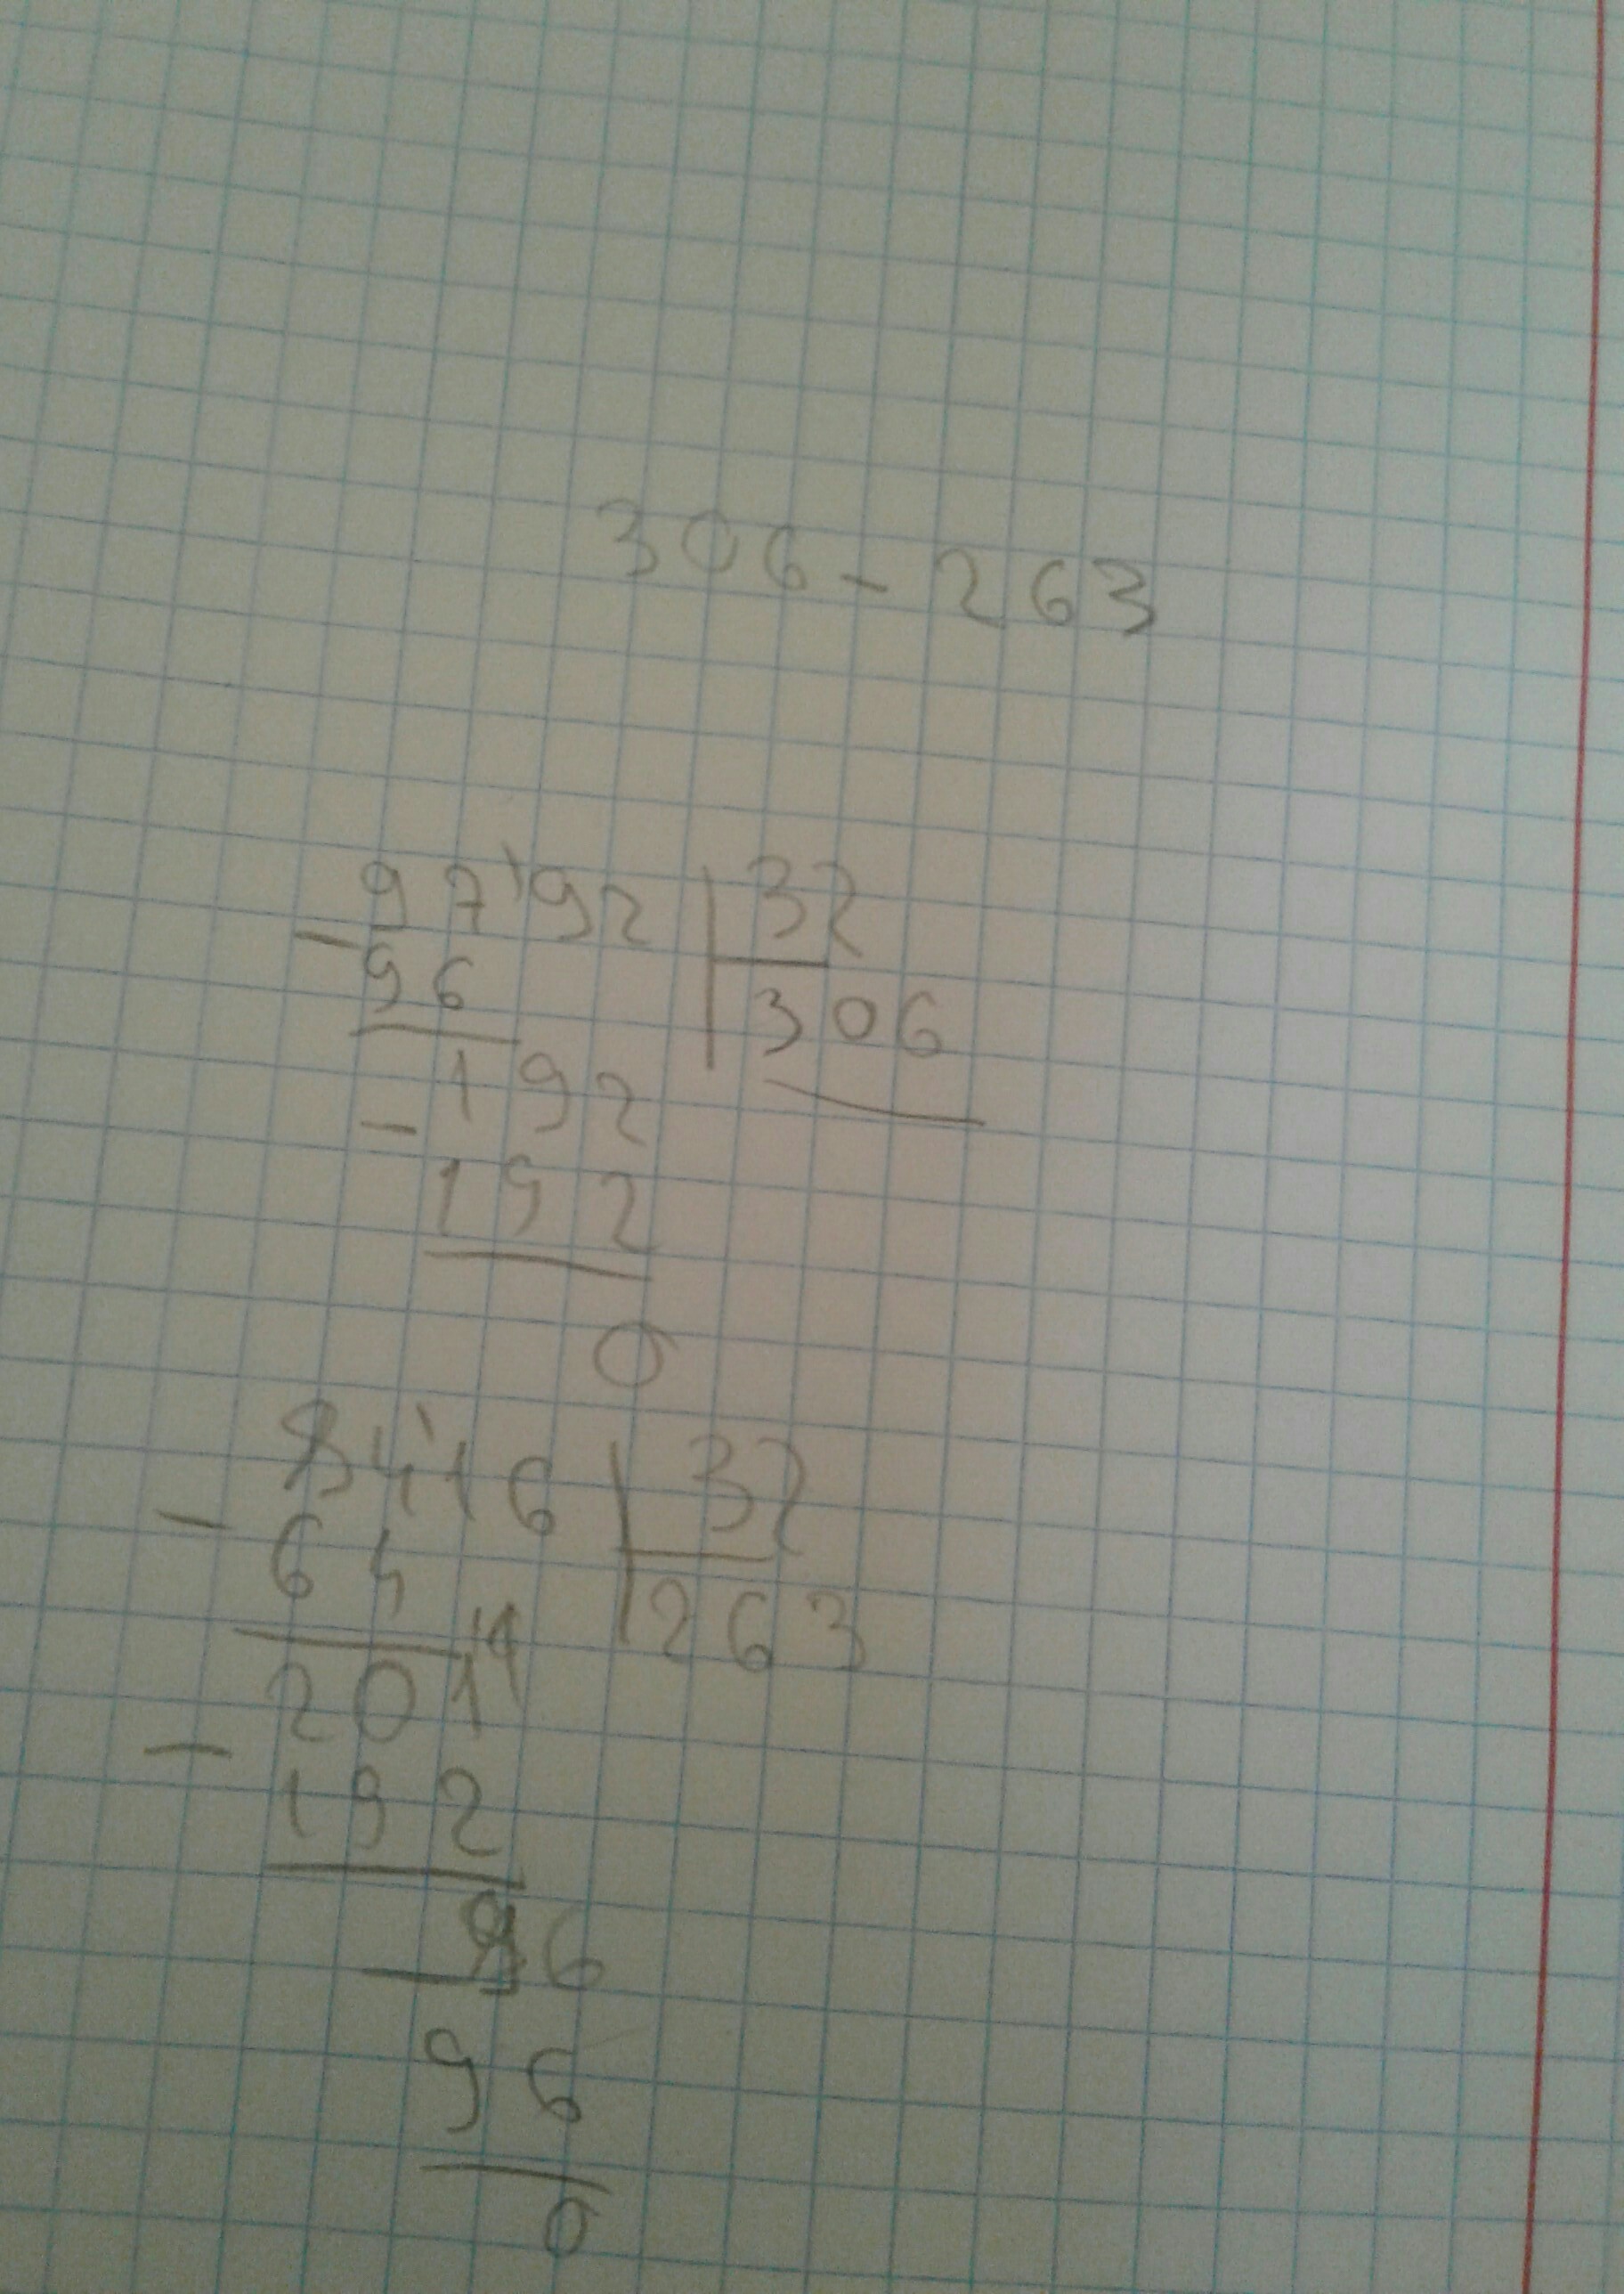 306 - 263
97'92 | 32
- 96 | 306
192
- 192
0
84'16 | 32
- 64 | 263
201
- 192
- 96
96
0